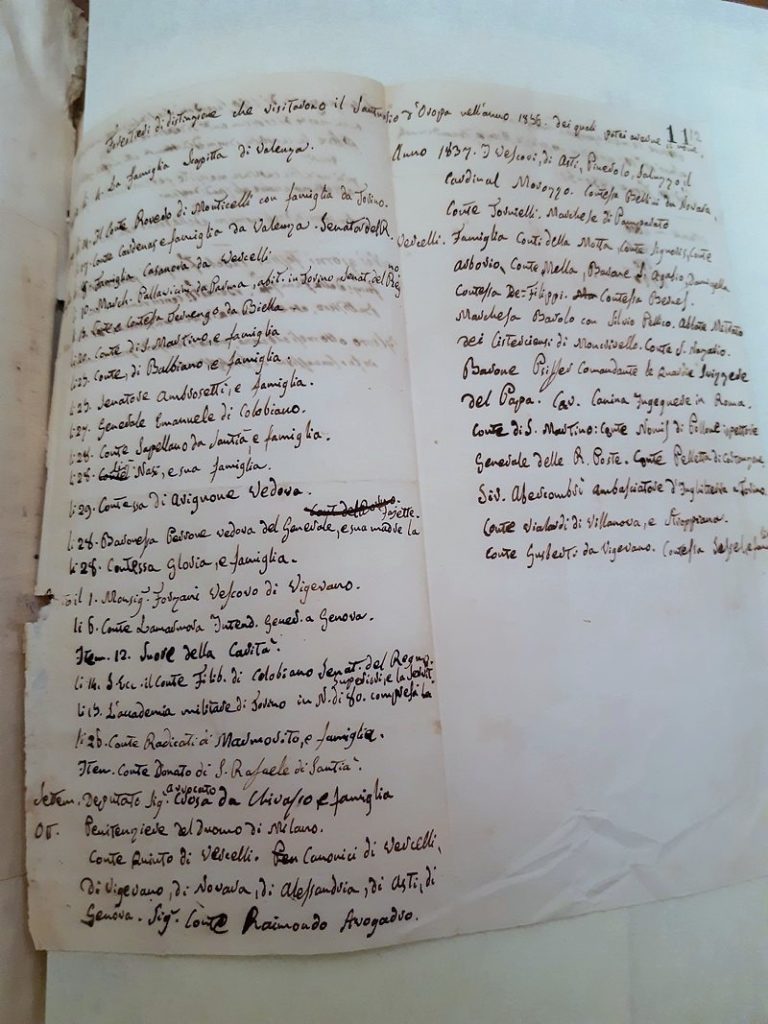 Forestieri di distinzione che visitarono il Santuario d'Oropa nell'anno 18 dei quali potei averne
11
4. La famiglia Scapitta di Valenza.
Il Conte Rovedo di Monticelli con famiglia da Torino.
Conte Cardenas e famiglia da Valenza. Senator del R.
Famiglia Casanova da Vercelli
10. March. Pallavicini da Parma, abit. in Torino Senat. del Regno
Contessa Ternengo da Biella
li 20. Conte di S. Martino, e famiglia
li 23. Conte, di Balbiano, e famiglia.
li 23. Senatore Ambrosetti, e famiglia.
li 27. Generale Emanuele di Colobiano.
li 28. Conte Sapellano da Santià e famiglia.
li 28. Nasi, e sua famiglia.
li 29. Contessa di Avignone Vedova.
li 28. Baronessa Perrone vedova del Generale, e sua madre la
li 28. Contessa Gloria, e famiglia.
il 1. Monsig. Forzani Vescovo di Vigevano.
li 6. Conte Lamarmora Intend. Gener. a Genova.
Item. 12. Suore della Carità.
li 14. S. Ecc. il Conte Filib. di Colobiano Senat. del Regno.
Superiori, e la Servit.
li 19. L'accademia militare di Torino in N. di 80. compresi la
li 26. Conte Radicati di Marmorito, e famiglia.
Item. Conte Donato di S. Rafaele di Santià.
Settem. Deputato Sig. avvocato Crosa da Chivasso e famiglia
Ott. Penitenziere del Duomo di Milano.
Conte Quinto di Vercelli. Canonici di Vercelli,
di Vigevano, di Novara, di Alessandria, di Asti, di
Genova. Sig. Conte Raimondo Avogadro.
Anno 1837. I Vescovi, di Asti, Pinerolo, Saluzzo, il
Cardinal Morozzo. Contessa Bellini da Novara.
Conte Tornielli. Marchese di Pamparato
Vercelli. Famiglia Conti della Motta, Conte Conte
Arborio, Conte Mella, Barone di Agasio, Damigela
Contessa De-Filippi. Contessa
Marchesa Barolo con Silvio Pellico. Abbate Mitrato
dei Cisterciensi di Moncrivello. Conte S. Nazario.
Barone Psiffer Comandante le Guardie Svizzere
del Papa. Cav. Canina Ingegnere in Roma.
Conte di S. Martino: Conte Nomis di Pollone ispettore
Generale delle R. Poste. Conte Pelletta di Cortanzone
Sir. Abercombri Ambasciatore d'Inghilterra a Torino.
Conte Vialardi di Villanova, e Stroppiana.
Conte Gusberti da Vigevano. Contessa